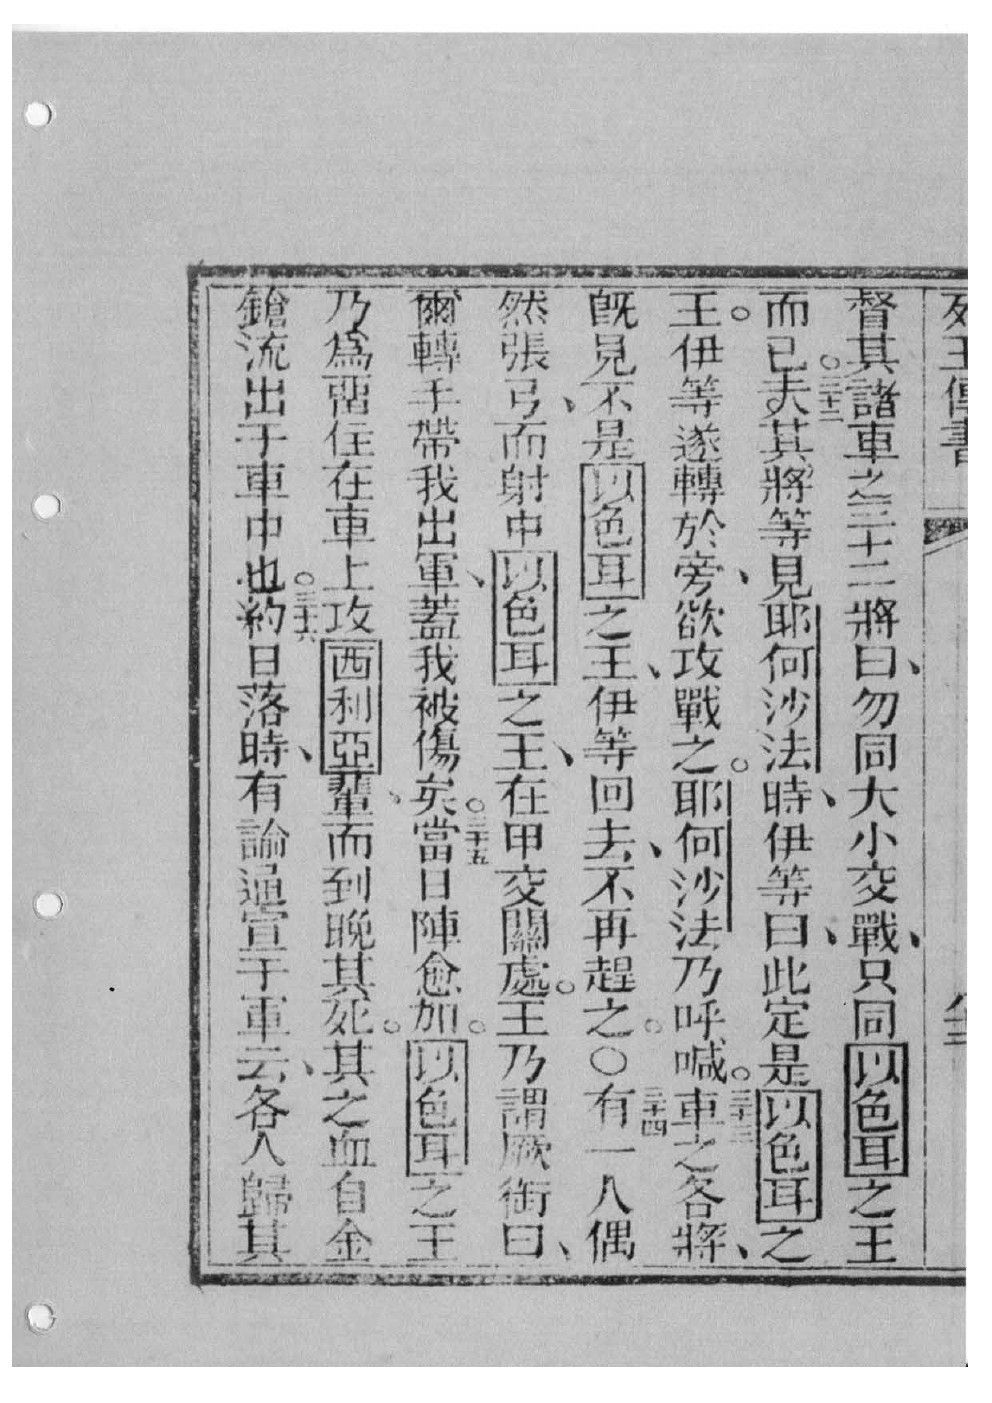 列王傳書
督其諸車之三十二將曰、勿同大小交戰、只同以色耳之王
而已。三十二夫其將等見耶何沙法時、伊等曰、此定是以色耳之
王。伊等遂轉於旁、欲攻戰之。耶何沙法乃呼喊。三十三車之各將、
既見不是以色耳之王、伊等回去、不再趕之。○三十四有一人偶
然張弓、而射中以色耳之王、在甲交關處。王乃謂厥御曰、
爾轉手帶我出軍、蓋我被傷矣。三十五當日陣愈加。以色耳之王
乃為留住在車上攻西利亞輩、而到晚其死。其之血自金
鎗流出于車中也。三十六約日落時、有諭通宣于軍云、各人歸其